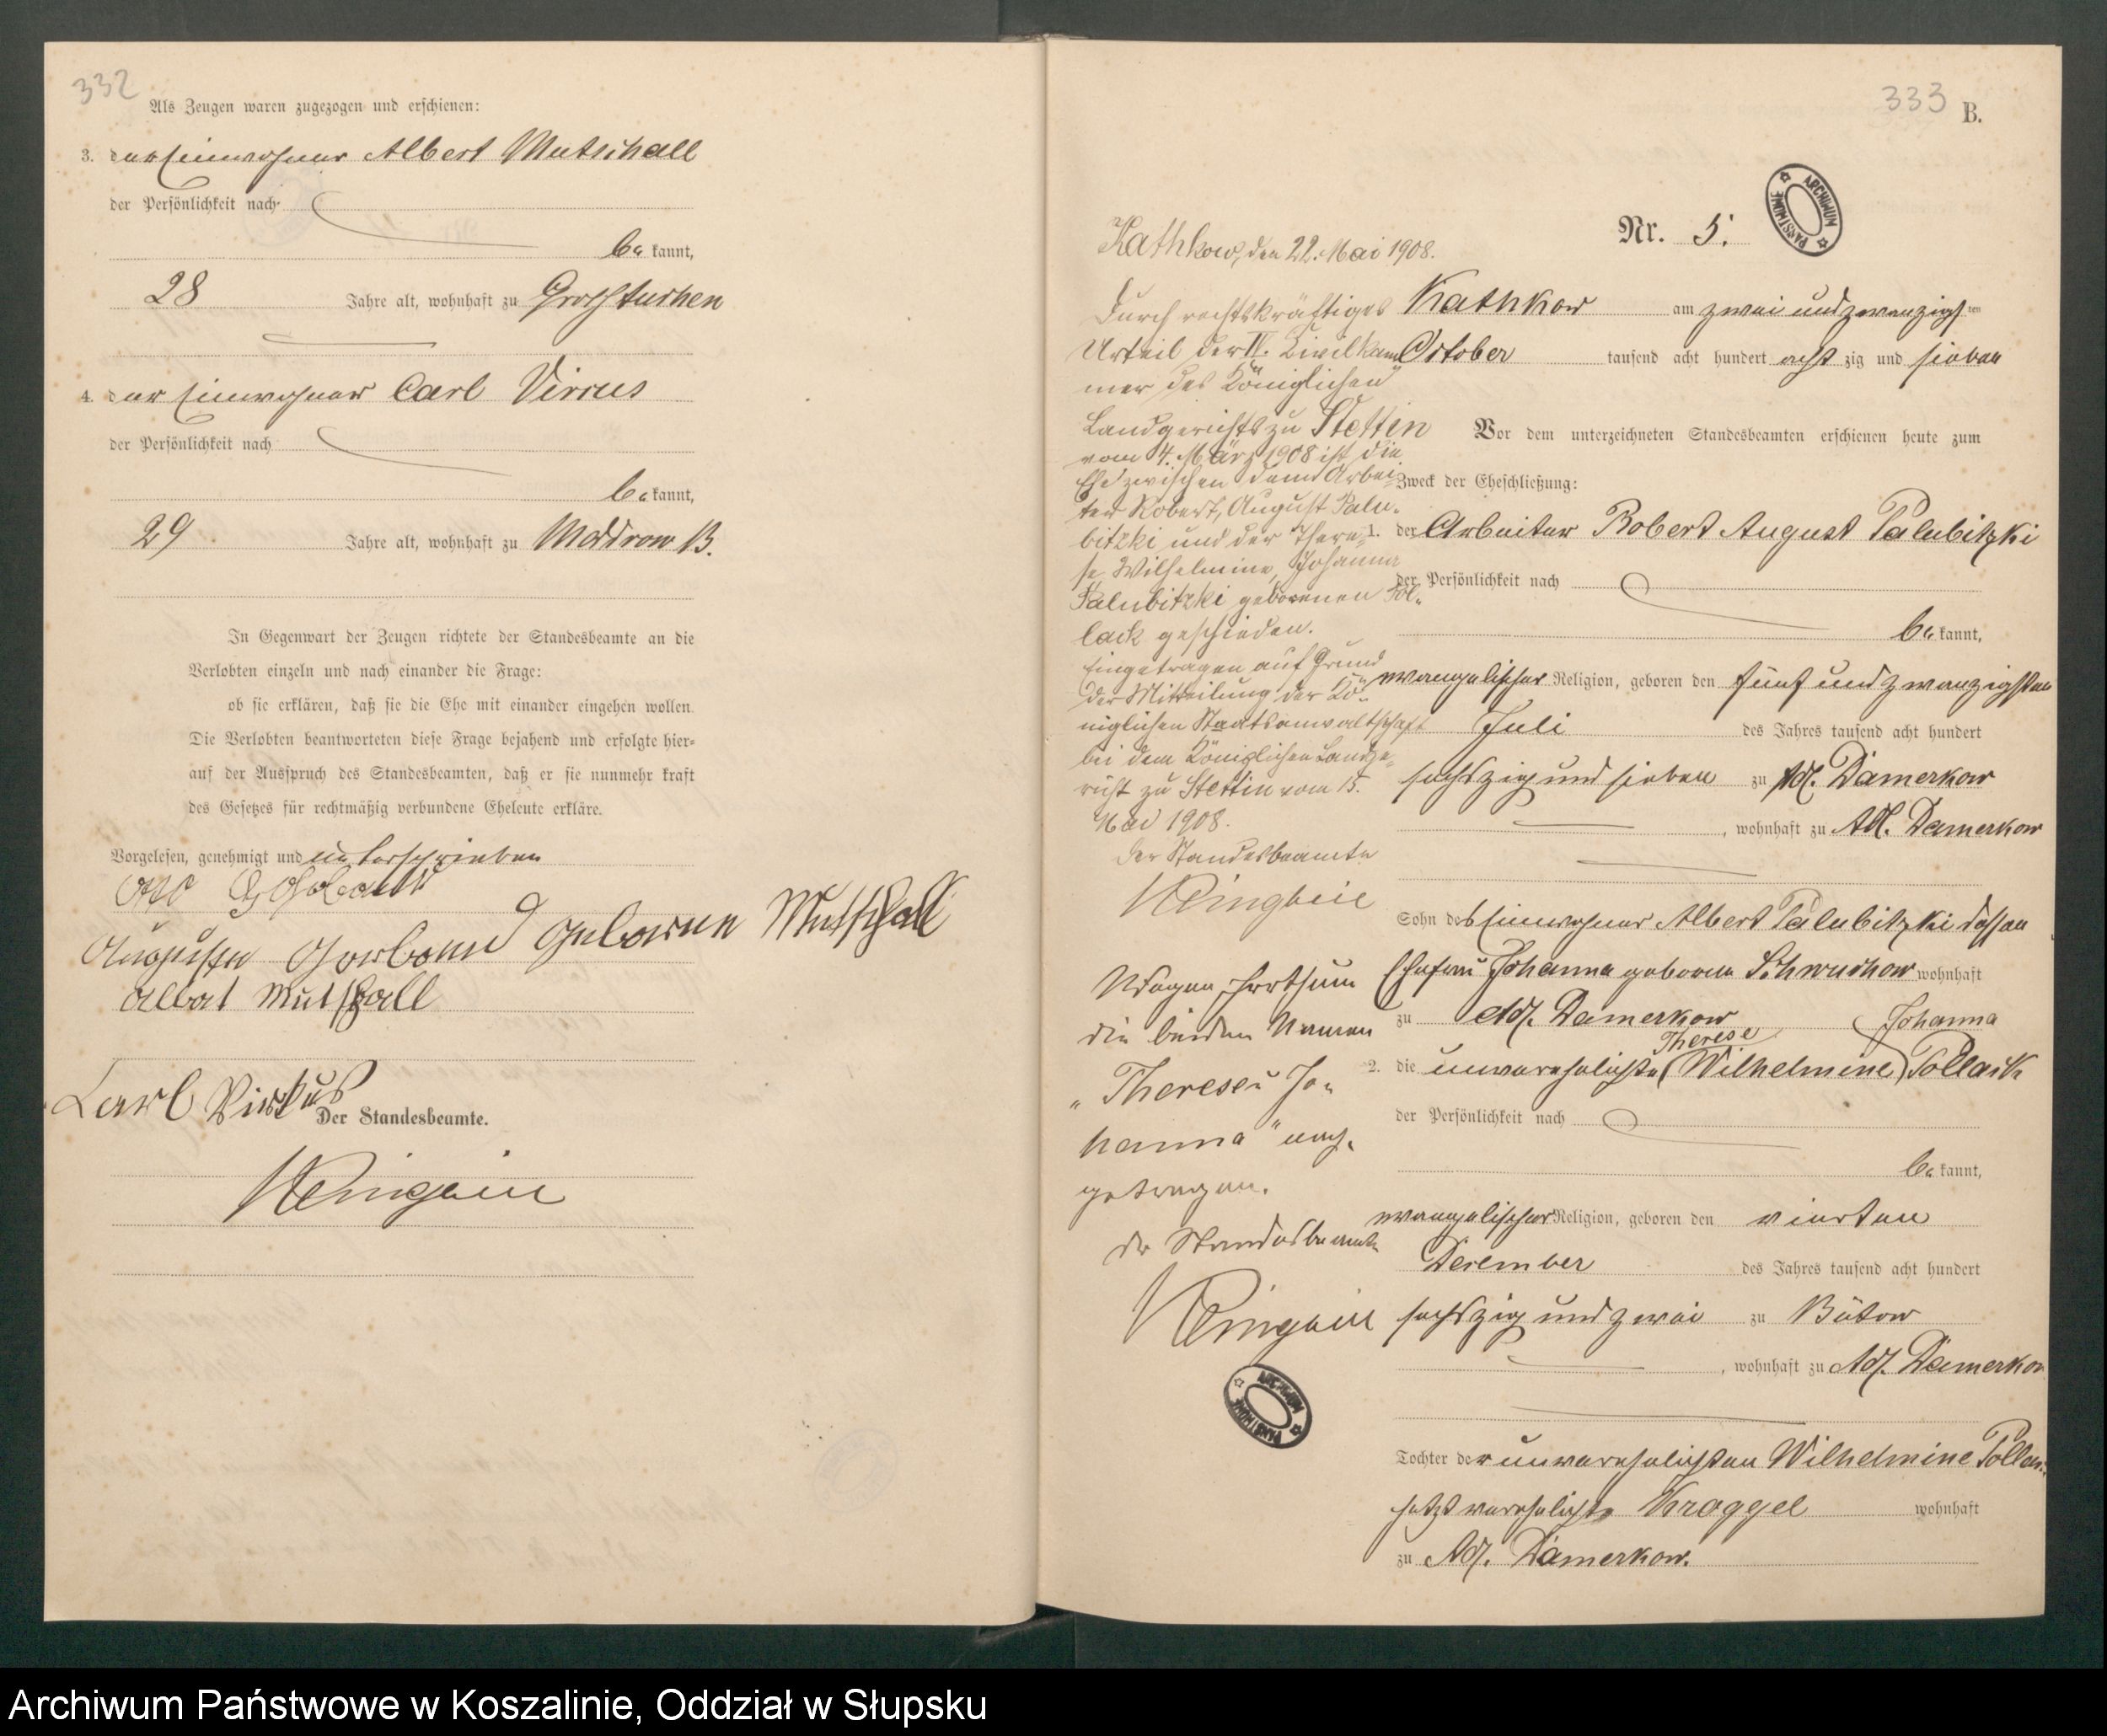 332
Als Zeugen waren zugezogen und erschienen:
3. der Einwohner Albert Mutschall
der Persönlichkeit nach
be kannt,
28 Jahre alt, wohnhaft zu Großtuchen
4. der Einwohner Carl Virrus
der Persönlichkeit nach
be kannt,
29 Jahre alt, wohnhaft zu Moddrow B.
In Gegenwart der Zeugen richtete der Standesbeamte an die
Verlobten einzeln und nach einander die Frage:
ob sie erklären, daß sie die Ehe mit einander eingehen wollen.
Die Verlobten beantworteten diese Frage bejahend und erfolgte hier-
auf der Ausspruch des Standesbeamten, daß er sie nunmehr kraft
des Gesetzes für rechtmäßig verbundene Eheleute erkläre.
Vorgelesen, genehmigt und unterschrieben
Otto
Auguste geborene Mutschall
Albert Mutschall
Carl Virkus
Der Standesbeamte.
333 B.
ARCHIWUM PAŃSTWOWE
Nr. 5.
Kathkow, den 22. Mai 1908.
Durch rechtskräftiges
Urteil der IV. Civilkam
mer des Königlichen
Landgerichts zu Stettin
vom 4. März 1908 ist die
Ehe zwischen dem Arbei-
ter Robert, August Palu-
bitzki und der There-
se Wilhelmine, Johanna
Palubitzki geborenen Pol-
lack geschieden.
Eingetragen auf Grund
der Mitteilung der Kö-
niglichen Staatsanwaltschaft
bei dem Königlichen Landge-
richt zu Stettin vom 15.
Mai 1908.
Der Standesbeamte
Wegen Irrthum
die beiden Namen
"Therese u Jo-
hanna" nach-
getragen.
Der Standesbeamte
ARCHIWUM PAŃSTWOWE
Kathkow am zwei und zwanzigsten
October tausend acht hundert acht zig und sieben
Vor dem unterzeichneten Standesbeamten erschienen heute zum
Zweck der Eheschließung:
1. der Arbeiter Robert August Palubitzki
der Persönlichkeit nach
be kannt,
evangelischer Religion, geboren den fünf und zwanzigsten
Juli des Jahres tausend acht hundert
sechszig und sieben zu Adl. Damerkow
, wohnhaft zu Adl. Damerkow
Sohn des Einwohner Albert Palubitzki dessen
Ehefrau Johanna geborene Schwuchow wohnhaft
zu Adl. Damerkow
Therese Johanna
2. die unverehelichte (Wilhelmine) Pollack
der Persönlichkeit nach
be kannt,
evangelischer Religion, geboren den vierten
December des Jahres tausend acht hundert
sechszig und zwei zu Bütow
, wohnhaft zu Adl. Damerkow
Tochter der unverehelichten Wilhelmine
jetzt verehelichte Kroggel wohnhaft
zu Adl. Damerkow.
Archiwum Państwowe w Koszalinie, Oddział w Słupsku